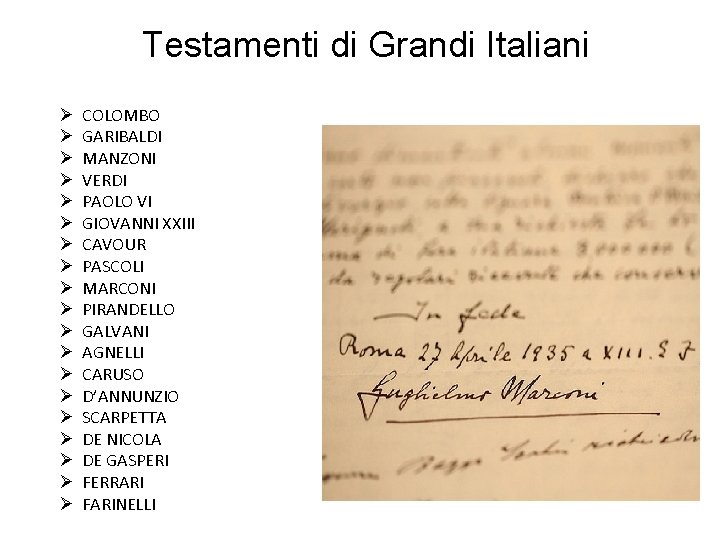 Testamenti di Grandi Italiani
Ø COLOMBO
Ø GARIBALDI
Ø MANZONI
Ø VERDI
Ø PAOLO VI
Ø GIOVANNI XXIII
Ø CAVOUR
Ø PASCOLI
Ø MARCONI
Ø PIRANDELLO
Ø GALVANI
Ø AGNELLI
Ø CARUSO
Ø D’ANNUNZIO
Ø SCARPETTA
Ø DE NICOLA
Ø DE GASPERI
Ø FERRARI
Ø FARINELLI
di lire italiane
da regolari ricevute che
In fede
Roma 27 Aprile 1935 a XIII. E F
Guglielmo Marconi